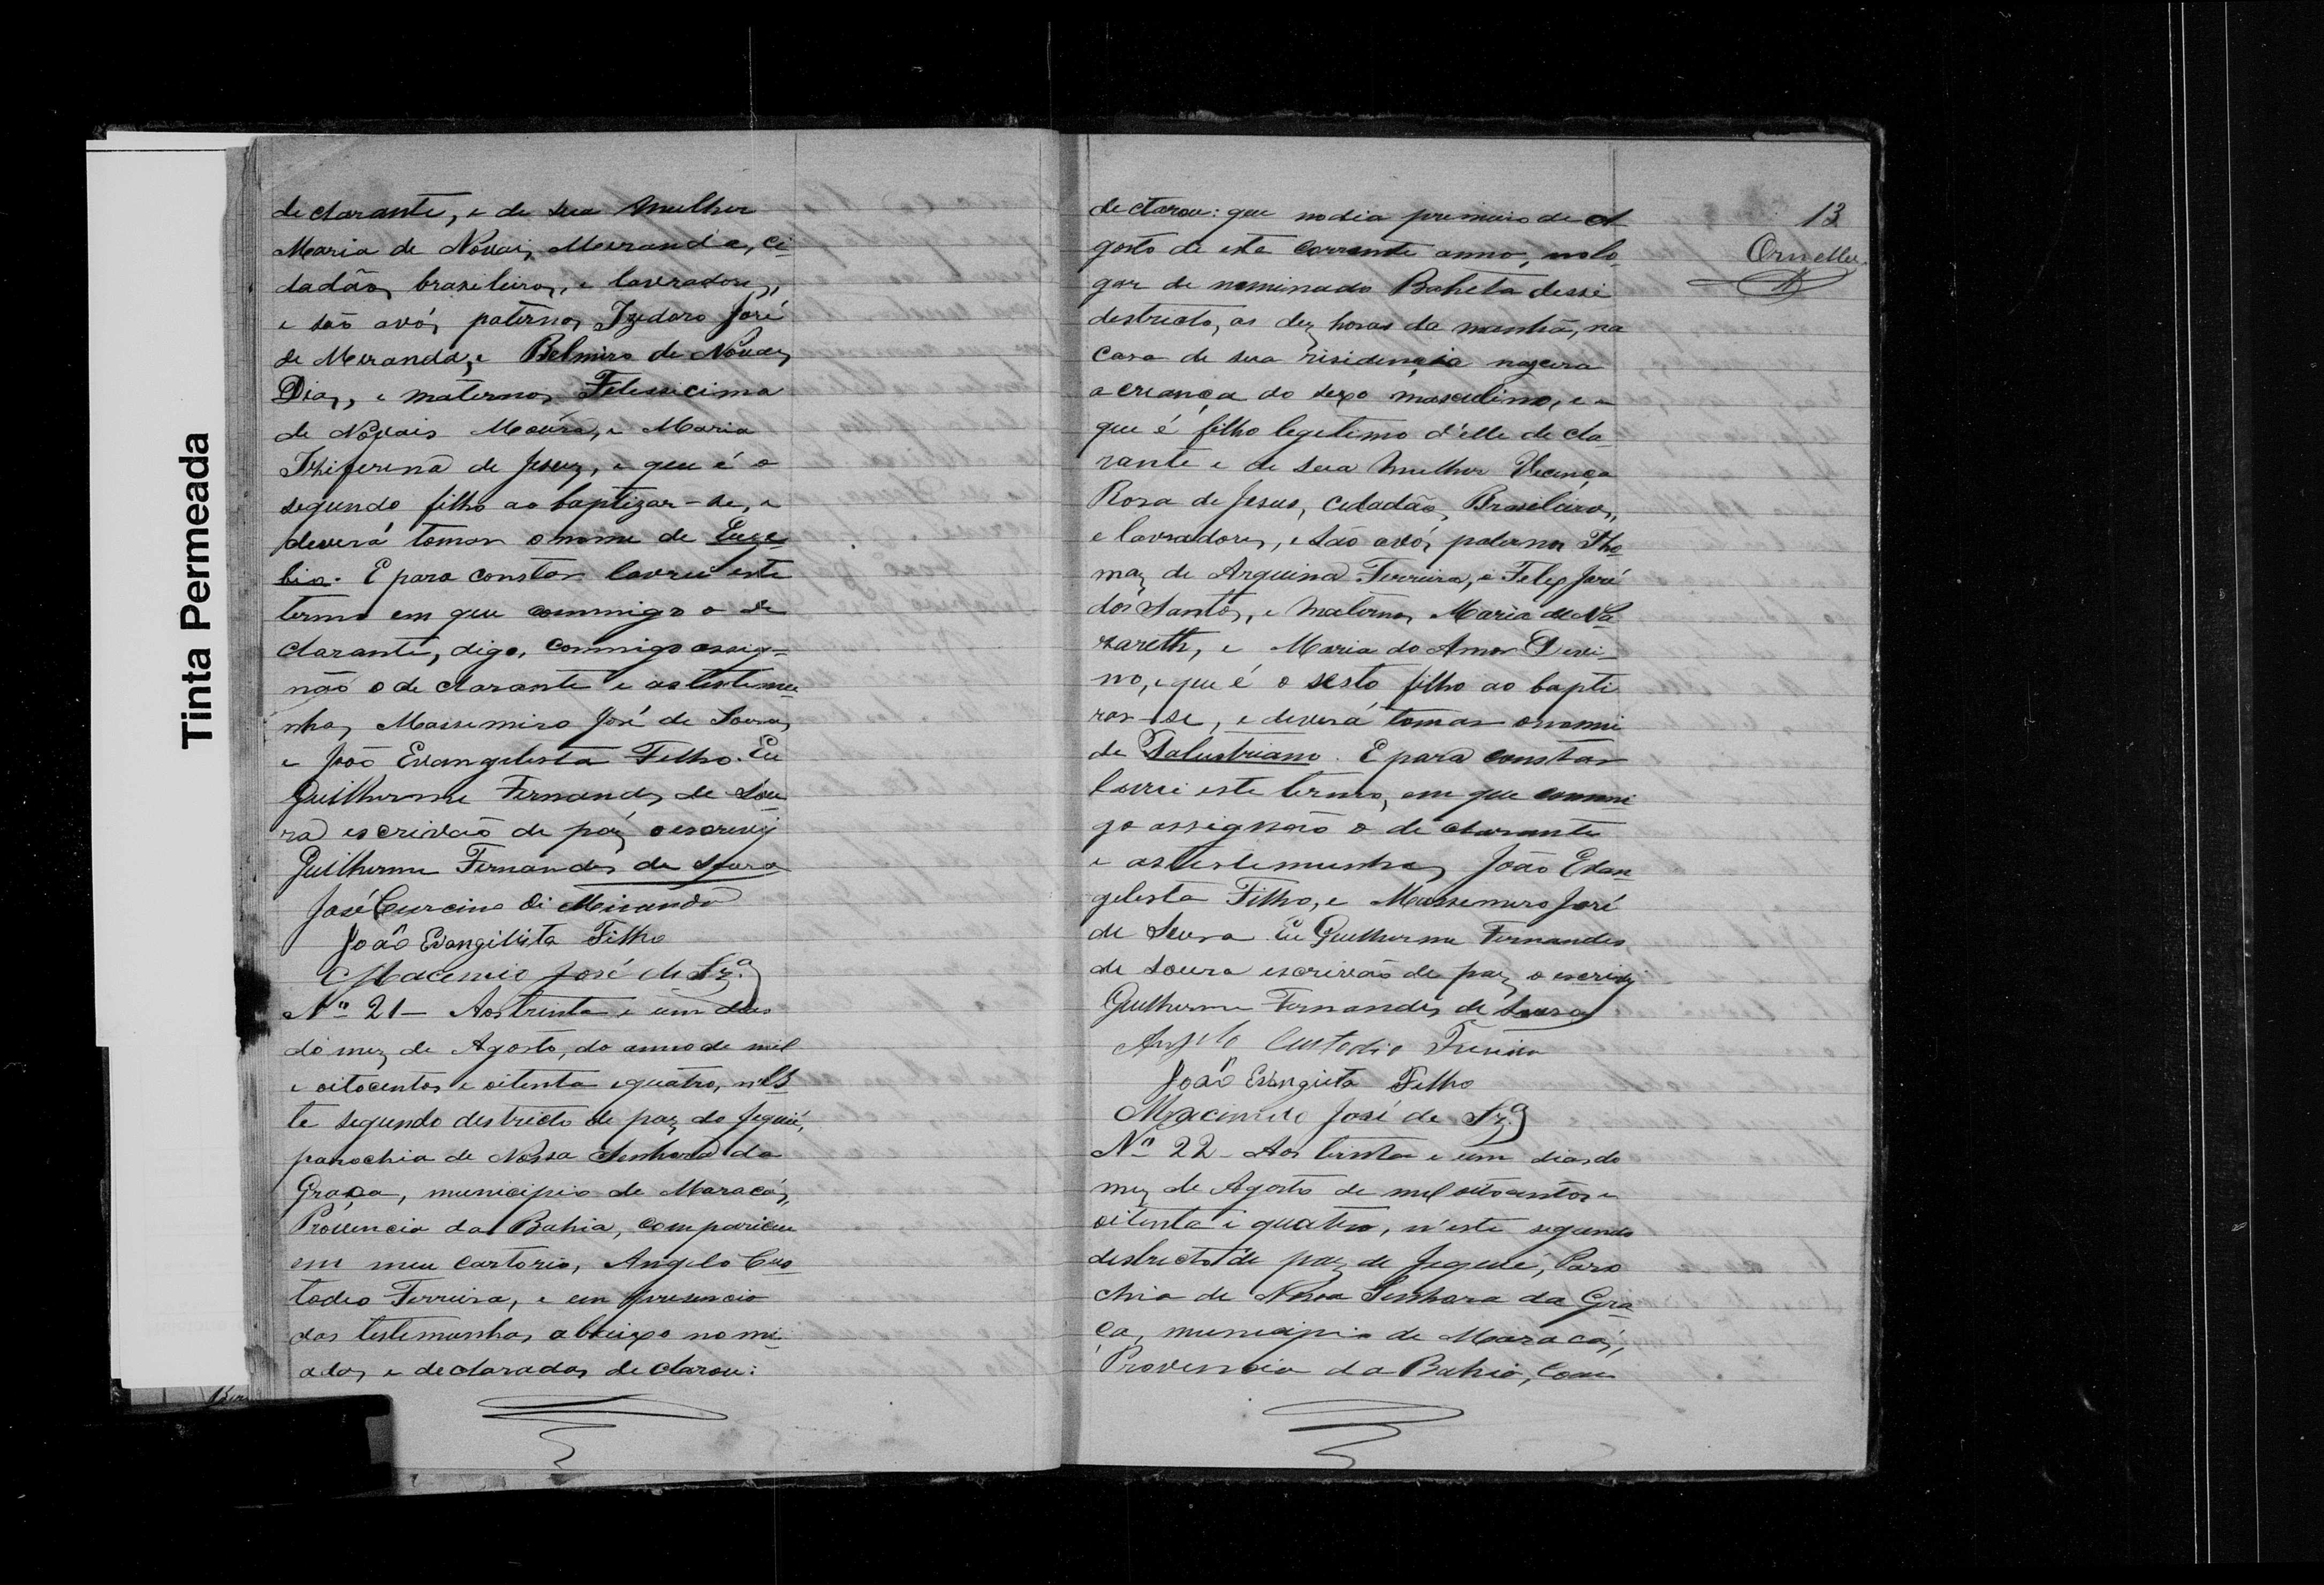 Tinta Permeada
declarante, e de sua mulher
Maria de Novais Meranda, ci-
dadãos brasileiros, e lavradores,
e são avós paternos Izedoro José
de Meranda, e Belmira de Novaes
Dias, e maternos Felessicima
de Novais Moura, e Maria
de Jesus, e que é o
segundo filho ao baptizar-se, e
deverá tomar o nome de Euze-
bia. E para constar lavrei este
termo em que commigo o de
clarante, digo, commigo assig-
não o declarante e as testemu
nhas Massemiro José de Souza,
e João Evangelista Filho. Eu
Guilherme Fernandes de Sou
za escrivão de paz o escrevy
Guilherme Fernandes de Souza
José Curcino di Miranda
João Evangilista Filho
José de Sz.ª
Nº 21 - Aos trinta e um dias
do mez de Agosto, do anno de mil
e oitocentos e oitenta e quatro, n'es
te segundo destricto de paz do Jequié,
parochia de Nossa Senhora da
Graça, municipio de Maracás,
Provencia da Bahia, compariceu
em meu cartorio, Angelo Cus-
todio Ferreira, e em presencia
das testemunhas abaixo nomi-
adas e declaradas declarou:
13
Ornellas
declarou: que no dia premeiro de A
gosto de este corrente anno, no lo-
gar denominado Baheta desse
destricto, as dez horas da manhã, na
casa de sua risidençia naçera
a criança do sexo masculino, e
que é filho legetimo d'elle decla
rante e de sua mulher
Rosa de Jesus, cidadãos Brasileiros,
e lavradores, e são avós paternos Tho-
maz de Ferreira, e Felex José
dos Santos, e maternos Maria de Na-
zareth, e Maria do Amor Devi-
no, e que é o sesto filho ao bapti
zar-se, e deverá tomar o nome
de Salustriano. E para constar
lavrei este termo, em que commi
go assignão o declarante
e as testemunhas João Evan
gelista Filho, e Massemiro José
de Souza. Eu Guilherme Fernandes
de Souza escrivão de paz o escrevy
Guilherme Fernandes de Souza
Angelo Custodio Fereira
João Evangista Filho
José de Sz.ª
Nº 22 - Aos trinta e um dias do
mez de Agosto de mil oitocentos e
oitenta e quatro, n'este segundo
destricto de paz de Jequié, Paro
chia de Nossa Senhora da Gra-
ça, municipio de Maracás,
Provencia da Bahia, com